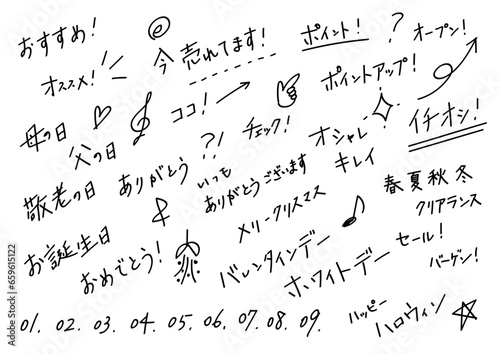 おすすめ!
今売れてます!
ポイント!
?
オープン!
オススメ!
ココ!
ポイントアップ!
母の日
父の日
?!
チェック!
オシャレ
キレイ
イチオシ!
敬老の日
ありがとう
いつも
ありがとうございます
春夏秋冬
クリアランス
お誕生日
おめでとう!
&
メリークリスマス
バレンタインデー
ホワイトデー
セール!
バーゲン!
01. 02. 03. 04. 05. 06. 07. 08. 09.
ハッピー
ハロウィン
Adobe Stock | #659615122